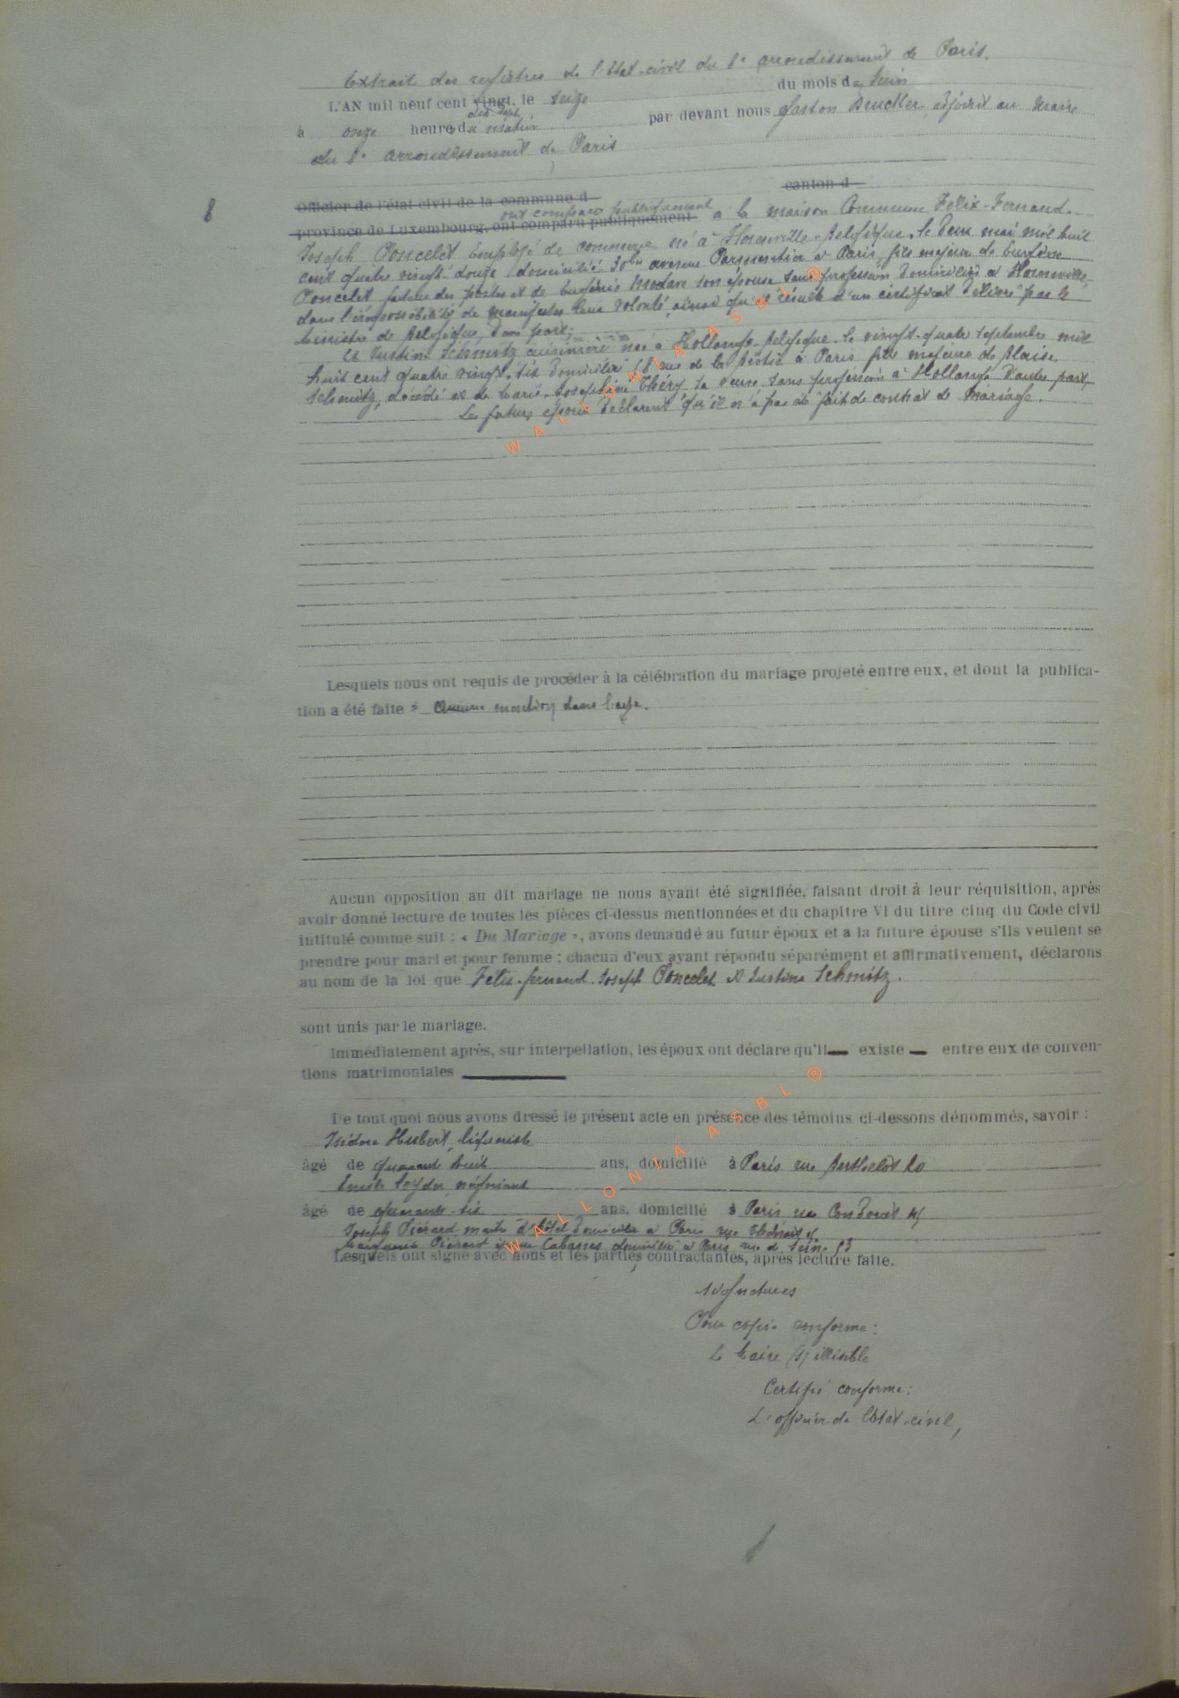 Extrait des registres de l'Etat-civil du 8e arrondissement de Paris.
L'AN mil neuf cent vingt, le seize du mois de Juin
dix-sept
à onze heure du matin par devant nous Gaston Bruckler, adjoint au Maire
du 8e arrondissement de Paris
8
Officier de l'état civil de la commune d canton d
ont comparu publiquement
province de Luxembourg, ont comparu publiquement à la maison Commune Felix-Fernand-
Joseph Poncelet Employé de commerce né à Belgique, le deux mai mil huit
cent quatre vingt-douze domicilié 30bis avenue Parmentier à Paris, fils majeur de Eugène
Poncelet facteur des postes et de Eugénie Modave son épouse sans profession domiciliés à
dans l'impossibilité de manifester leur volonté, ainsi qu'il résulte d'un certificat délivré par le
Ministre de Belgique, d'une part;
Et Justine Schmitz cuisinière née à Hollange-Belgique le vingt-quatre septembre mil
huit cent quatre vingt-six domiciliée rue de la Boétie à Paris fille majeure de Blaise
Schmitz, décédé et de Marie-Josephine Théry sa veuve, sans profession à Hollange d'autre part,
Les futurs époux déclarent qu'il n'a pas été fait de contrat de mariage.
Lesquels nous ont requis de procéder à la célébration du mariage projeté entre eux, et dont la publica-
tion a été faite : Aucune mention dans l'acte.
Aucun opposition au dit mariage ne nous ayant été signifiée, faisant droit à leur réquisition, après
avoir donné lecture de toutes les pièces ci-dessus mentionnées et du chapitre VI du titre cinq du Code civil
intitulé comme suit : « Du Mariage », avons demandé au futur époux et a la future épouse s'ils veulent se
prendre pour mari et pour femme ; chacun d'eux ayant répondu séparément et affirmativement, déclarons
au nom de la loi que Felix-Fernand-Joseph Poncelet et Justine Schmitz.
sont unis par le mariage.
Immédiatement après, sur interpellation, les époux ont déclare qu'il existe entre eux de conven-
tions matrimoniales
De tout quoi nous avons dressé le présent acte en présence des témoins ci-dessons dénommés, savoir :
Isidore Hubert, liquoriste
âgé de quarante huit ans, domicilié à Paris rue Berthelot 20
Emile négociant
âgé de quarante-six ans, domicilié à Paris rue Condorcet 45
Joseph Piérard maître d'hôtel domicilié à Paris rue
Marguerite Piérard domiciliée à Paris rue de Seine 53
Lesquels ont signé avec nous et les parties contractantes, après lecture faite.
Signatures
Pour copie conforme:
Le Maire (s) illisible
Certifié conforme:
L'officier de l'état-civil,
WALLONIA ASBL ®
WALLONIA ASBL ®